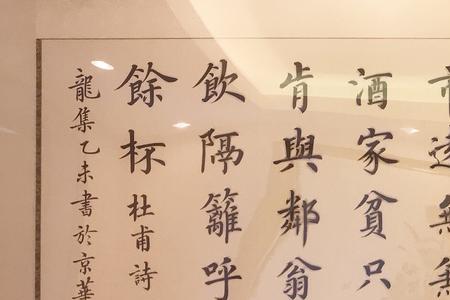 市遠無兼
酒家貧只
肯與鄰翁
飲隔籬呼
餘杯 杜甫詩
龍集乙未書於京華